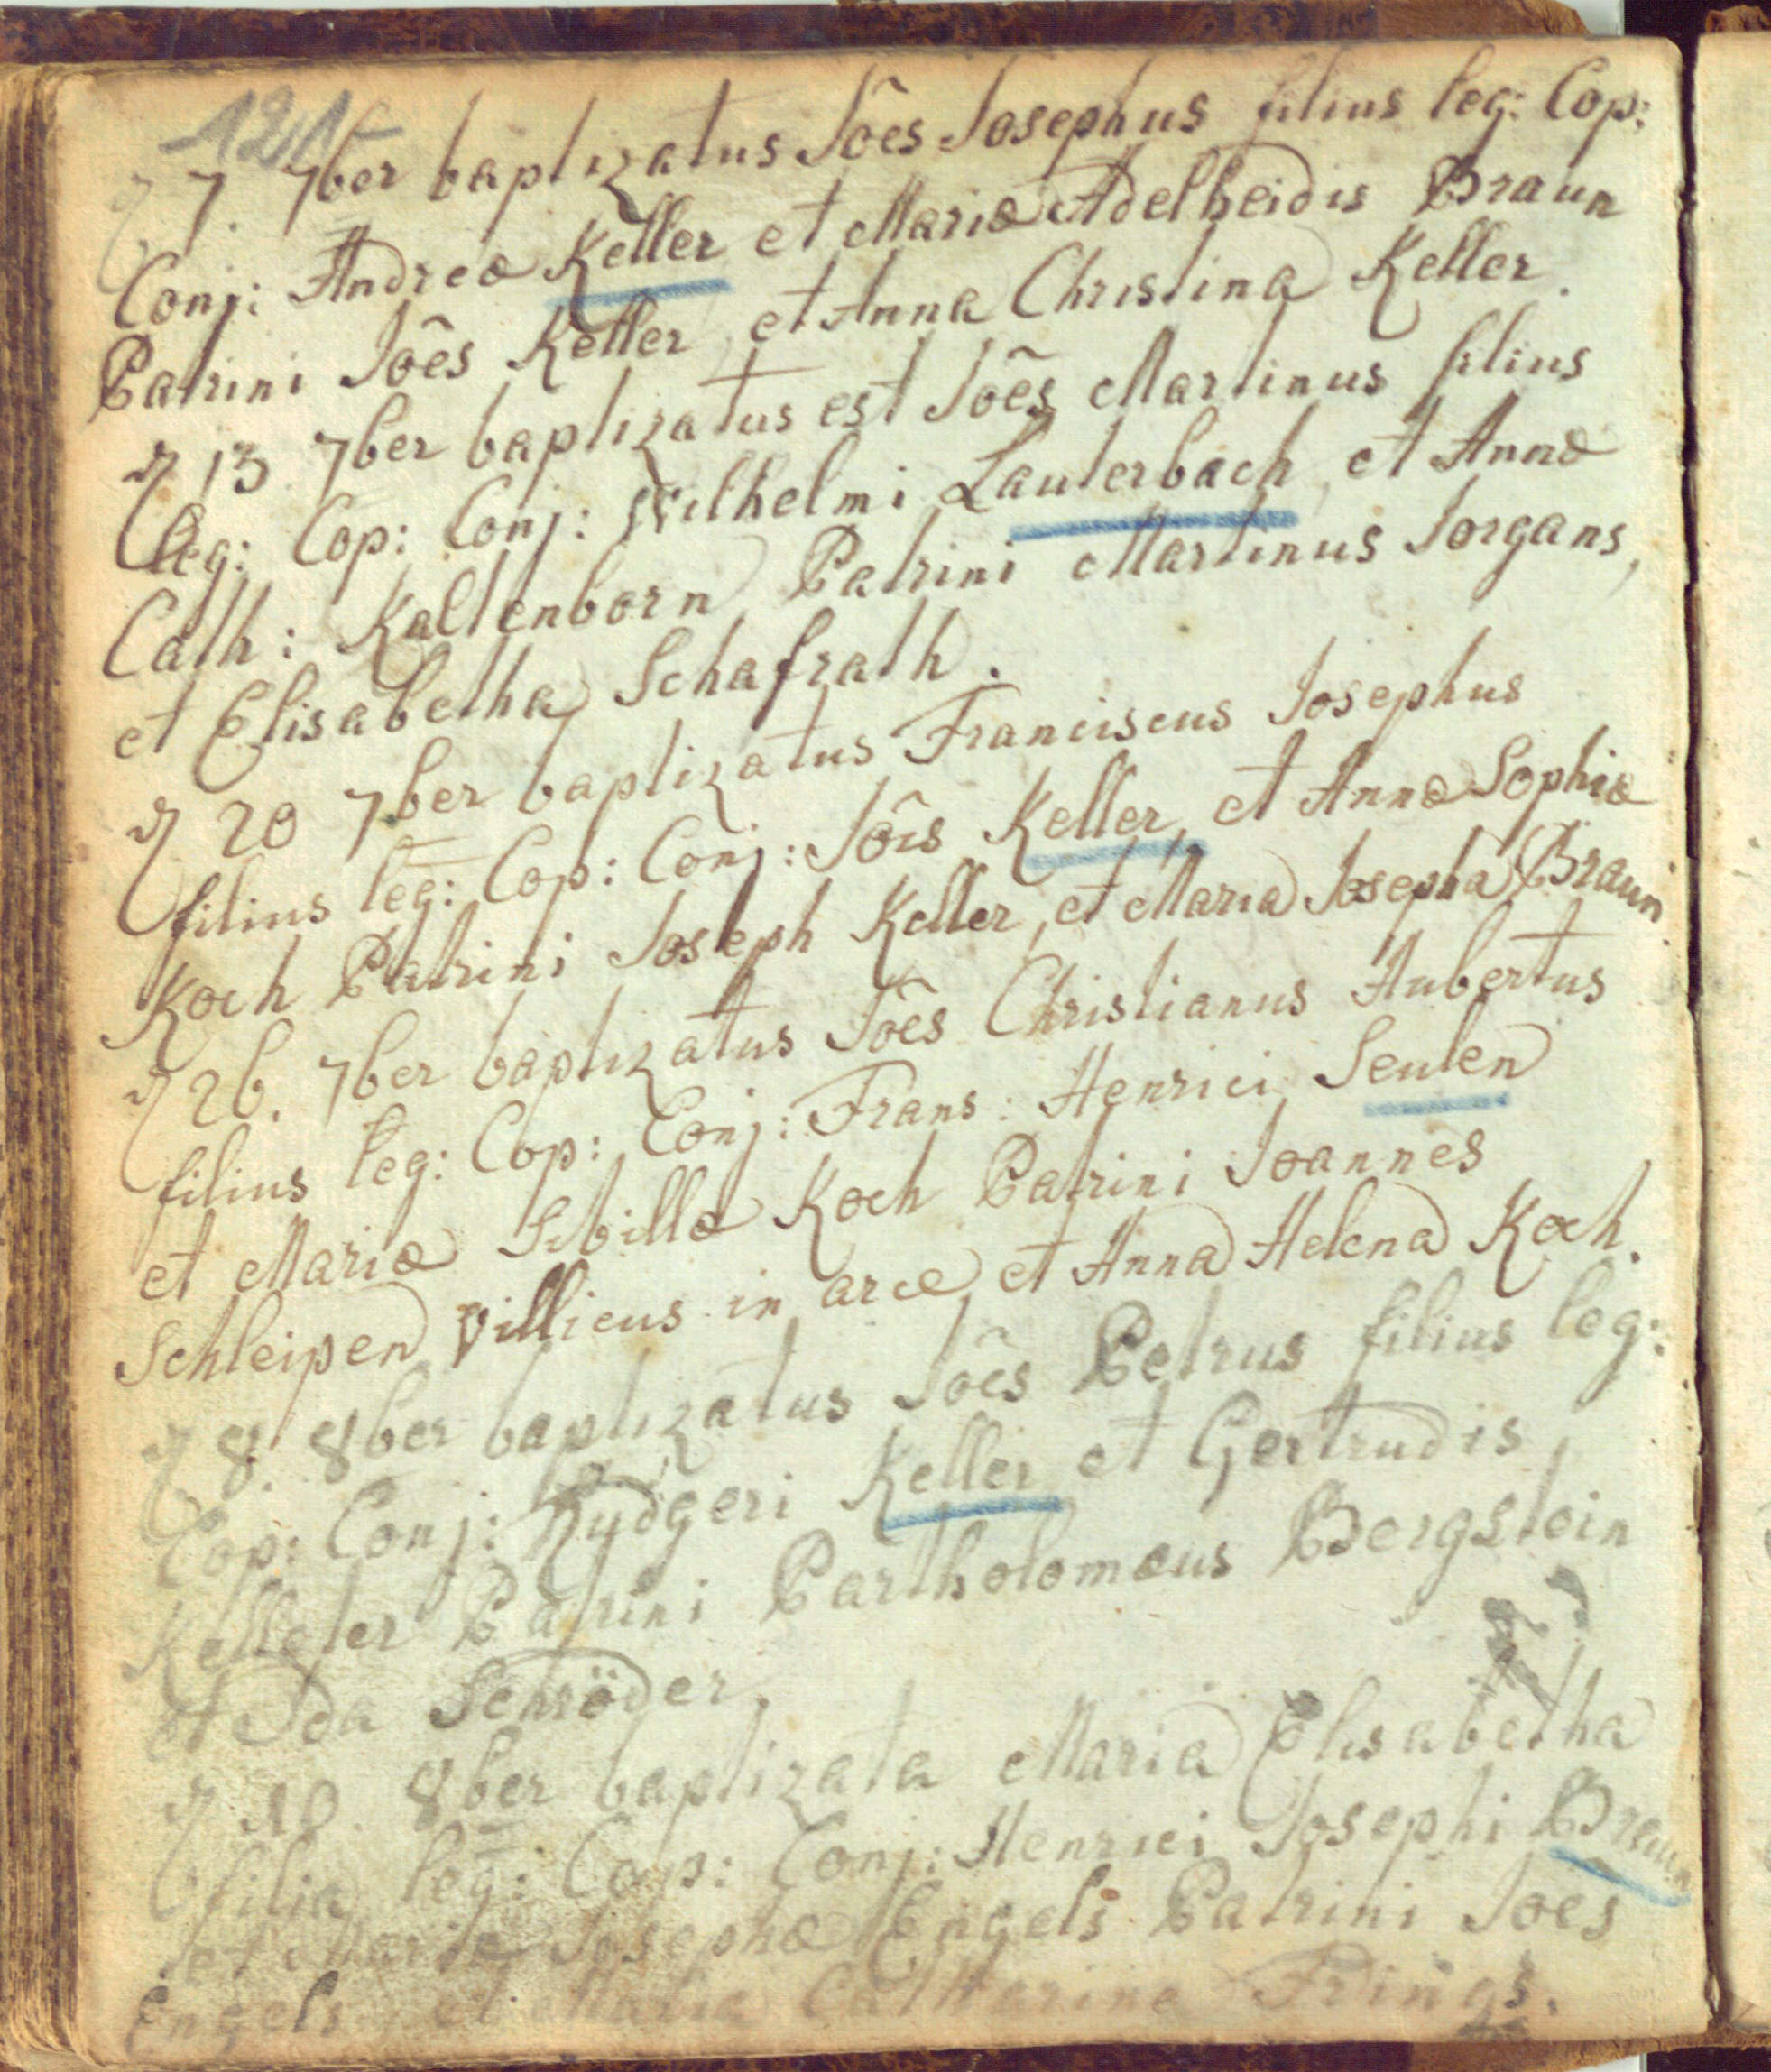 121
7. 7ber baptizatus Joês Josephus filius leg: Cop:
Conj: Andreæ Keller et Mariæ Adelheidis Braun
Patrini Joês Keller et Anna Christina Keller.
13 7ber baptizatus est Joês Martinus filius
leg: Cop: Conj: Wilhelmi Lauterbach, et Annæ
Cath: Kaltenborn Patrini Martinus Jorgans,
et Elisabetha Schafrath.
20 7ber baptizatus Franciscus Josephus
filius leg: Cop: Conj: Joîs Keller, et Annæ Sophiæ
Koch Patrini Joseph Keller, et Maria Josepha Braun
26. 7ber baptizatus Joês Christianus Hubertus
filius leg: Cop: Conj: Frans: Henrici Seulen
et Mariæ Sibillæ Koch Patrini Joannes
Schleipen villicus in arce et Anna Helena Koch.
8. 8ber baptizatus Joês Petrus filius leg:
Cop: Conj: Rydgeri Keller et Gertrudis
Kelleter Patrini Bartholomæus Bergstein
et Ida Schröder.
10. 8ber baptizata Maria Elisabetha
filia leg: Cop: Conj: Henrici Josephi Braun
et Mariæ Josephæ Engels Patrini Joes
Engels et Maria Catharina Frings.